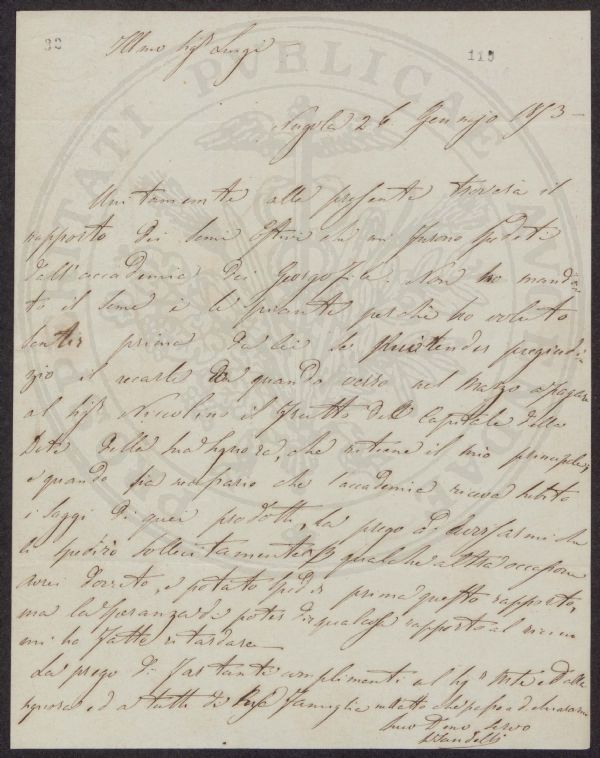 32
Illmo Sigr Luigi
119
Nugola 26 Gennajo 1853 –
Unitamente alla presente troverà il
rapporto dei semi che mi furono spediti
dall'accademia dei Georgofili. Non ho manda
to il seme e le piante perché ho voluto
sentir prima da lei se pregiudi
zio il recarle quando verrò nel Marzo a pagare
al Sigr Niccolino il frutto del Capitale della
Dote della sua Signora, che ritiene il mio principale,
e quando sia necessario che l'accademia riceva subito
i saggi di quei prodotti, la prego ad avvisarmi che
li spedirò sollecitamente qualche altra occasione
avrei dovuto, e potuto spedir prima questo rapporto,
ma la speranza di poter dir qualcosa rapporto al
mi ha fatto ritardare
La prego di far tanti complimenti al Sigr e dalla
Signora ed a tutti di famiglia mentre che passo a dichiararmi
Suo Dmo servo